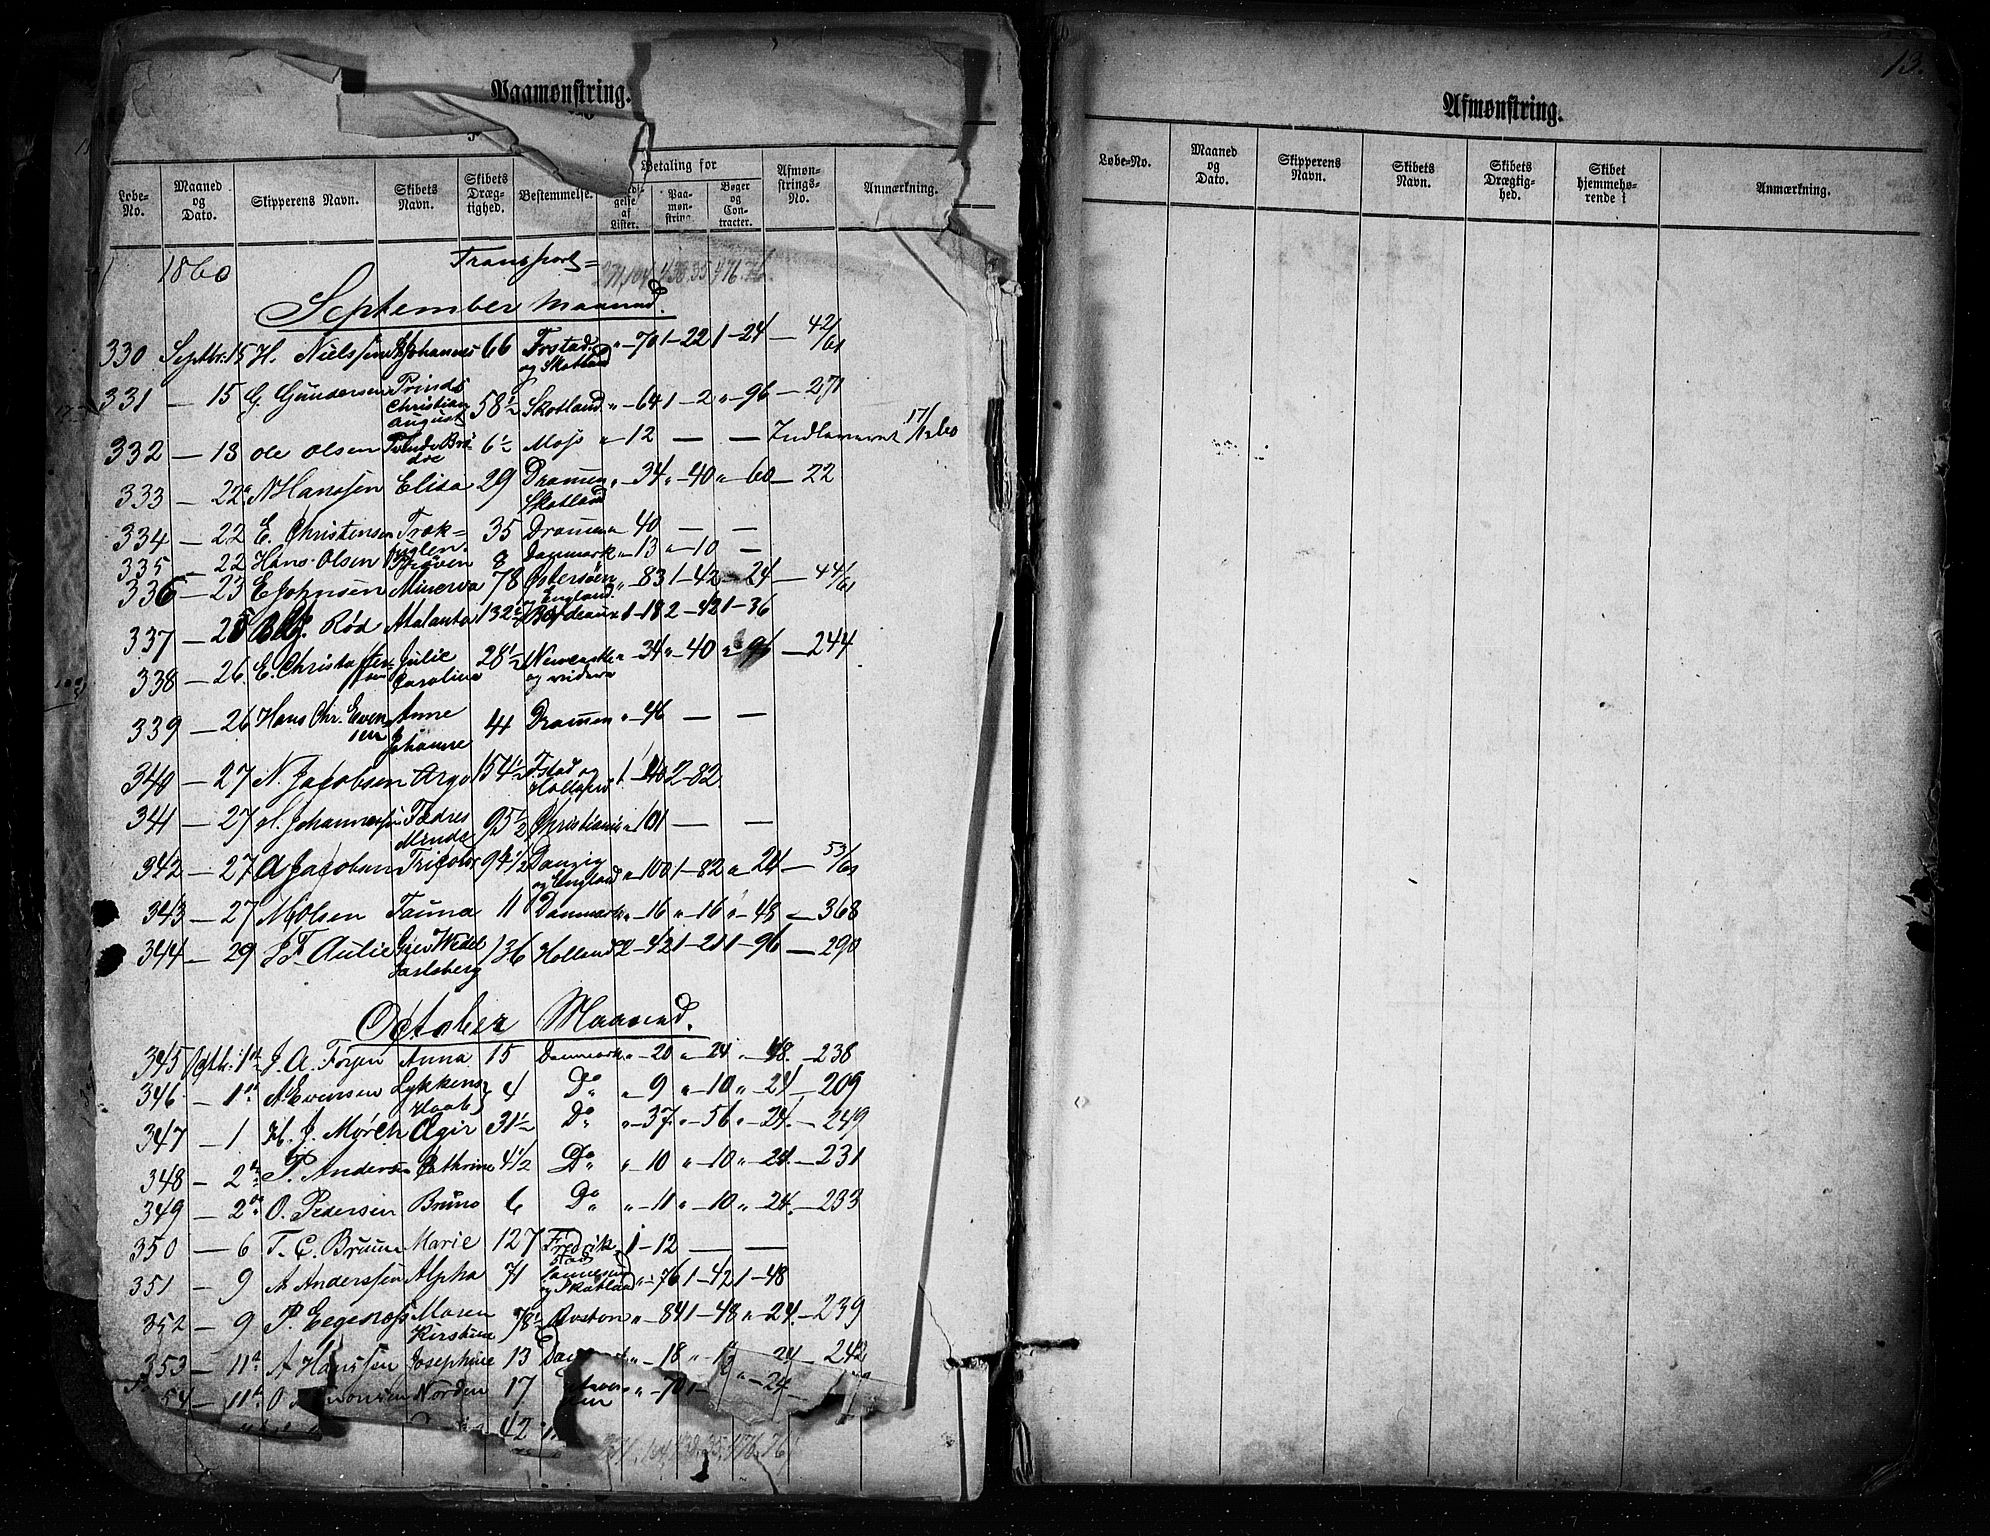 Paamønstring.
Løbe-No. Maaned og Dato. Skipperens Navn. Skibets Navn. Skibets Dræg-tighed. Bestemmelse. Betaling for gelse af Lister. Paa-møn-string. Bøger og Con-tracter. Afmøn-strings-No. Anmærkning.
1860 Transport=
September Maaned.
330 Septbr. 15 H. Nielssen Johannes 66 Frstad og Skotland " - 70 1 - 22 1 - 24 - 42/61
331 - 15 G. Gundersen Prinds Christian August 58 1/2 Skotland " - 64 1 - 2 " - 96 - 271
332 - 18 Ole Olsen Brødre 6 1/2 Moss " 12 - - Indleveret 17/12 60
333 - 22 N Hanssen Elisa 29 Dramen Skotland " - 34 " - 40 " - 60 - 22
334 - 22 E. Christensen Træk=fuglen 35 Dramen " 40 - -
335 - 22 Hans Olsen 8 Danmark " - 13 " - 10 -
336 - 23 E Johnsen Minerva 78 Østersøen og England " - 83 1 - 42 - 24 - 44/61
337 - 25 Rød Atalanta 132 1/2 Bordeaux 1 - 18 2 - 42 1 - 36
338 - 26 E. Christoffersen Julie Carolina 28 1/2 Newcastle og videre " 34 " - 40 " - 96 - 244
339 - 26 Hans Chr. Evensen Anne Johanne 44 Dramen " - 46 - -
340 - 27 N. Jacobsen Argo 154 1/2 Fstad og Holland 1 - 40 2 - 82
341 - 27 Johannessen Fædres Minde 95 1/2 Christiania " 101 - -
342 - 27 A Jacobsen Tricolor 94 1/2 Danzig og England " - 100 1 - 82 " - 24 - 53/61
343 - 27 M Olsen Fauna 11 Danmark " - 16 " - 16 " - 48 - 368
344 - 29 Aulie Grev Wedel Jarlsberg 136 Holland 2 - 42 1 - 21 1 - 96 - 290
October Maaned.
345 Octbr. 1 J. A. Torjen Anna 15 Danmark " - 20 " - 24 " - 48 - 238
346 - 1 A Evensen Lykkens Haab 4 Do " - 9 " - 10 " - 24 - 209
347 - 1 H. J. Mørch Ægir 31 1/2 Do " - 37 " - 56 " - 24 - 249
348 - 2 P. Anders Cathrine 4 1/2 Do " - 10 " - 10 " - 24 - 231
349 - 2 O. Pedersen Bruno 6 Do " - 11 " - 10 " - 24 - 233
350 - 6 T. C. Bruun Marie 127 Fredrikstad 1 - 12 - -
351 - 9 A Anderssen Alpha 71 og Skotland " - 76 1 - 42 1 - 48
352 - 9 P. Eegenæss Maren Kirstine 78 1/2 " - 84 1 - 48 " - 24 - 239
353 - 11 A Hanssen Josephine 13 " - 18 " - 24 - 242
54 - 11 O Norden 17 " - 70 1 - " - 24
42
13.
Afmønstring.
Løbe-No. Maaned og Dato. Skipperens Navn. Skibets Navn. Skibets Drægtig-hed. Skibet hjemmehø-rende i Anmærkning.